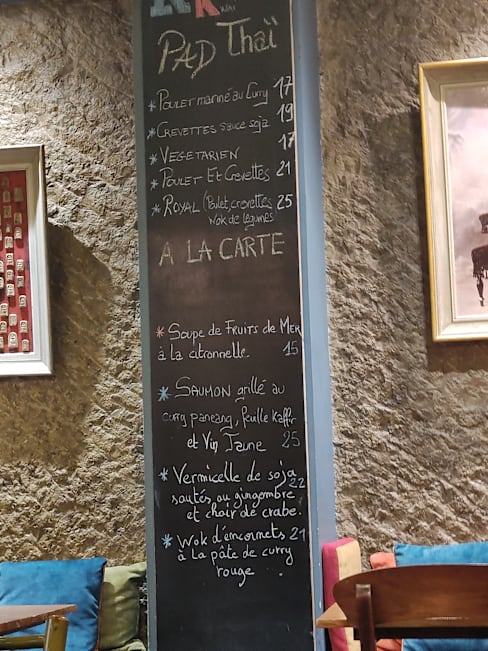 PAD Thaï
* Poulet mariné au Curry 17
* Crevettes sauce soja 19
* VEGETARIEN 17
* Poulet Et Crevettes 21
* ROYAL (Poulet, crevettes 25
Wok de légumes
A LA CARTE
* Soupe de Fruits de Mer
à la citronnelle. 15
* SAUMON grillé au
curry paneang, feuille Kaffir
et Vin Jaune 25
* Vermicelle de soja
sautés au gingembre 22
et chair de crabe.
* Wok d'encornets 21
à la pâte de curry
rouge.